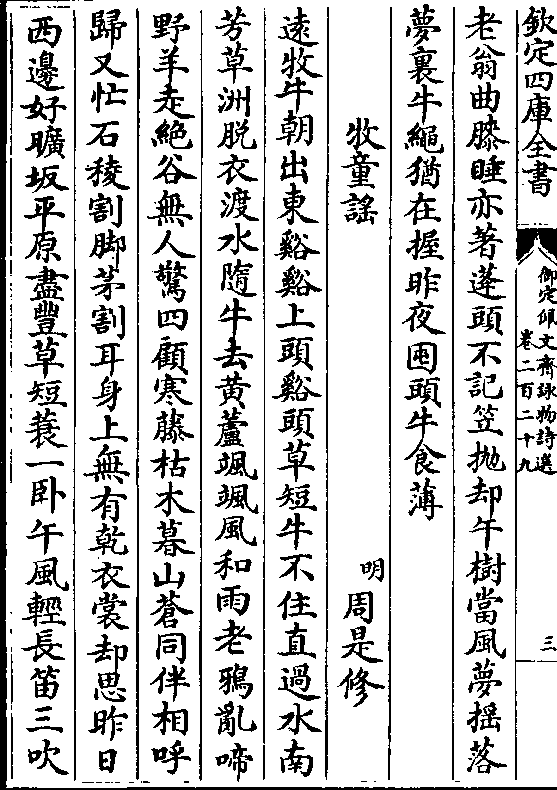 欽定四庫全書
御定佩文齋詠物詩選
卷二百二十九
三
老翁曲膝睡亦著蓬頭不記笠抛却午樹當風夢揺落
夢裏牛繩猶在握昨夜囤頭牛食薄
牧童謡
明周是修
逺牧牛朝出東谿谿上頭谿頭草短牛不住直過水南
芳草洲脱衣渡水隨牛去黄蘆颯颯風和雨老鴉亂啼
野羊走絶谷無人驚四顧寒藤枯木暮山蒼同伴相呼
歸又忙石稜割脚茅割耳身上無有乾衣裳却思昨日
西邊好曠坂平原盡豐草短蓑一卧午風輕長笛三吹